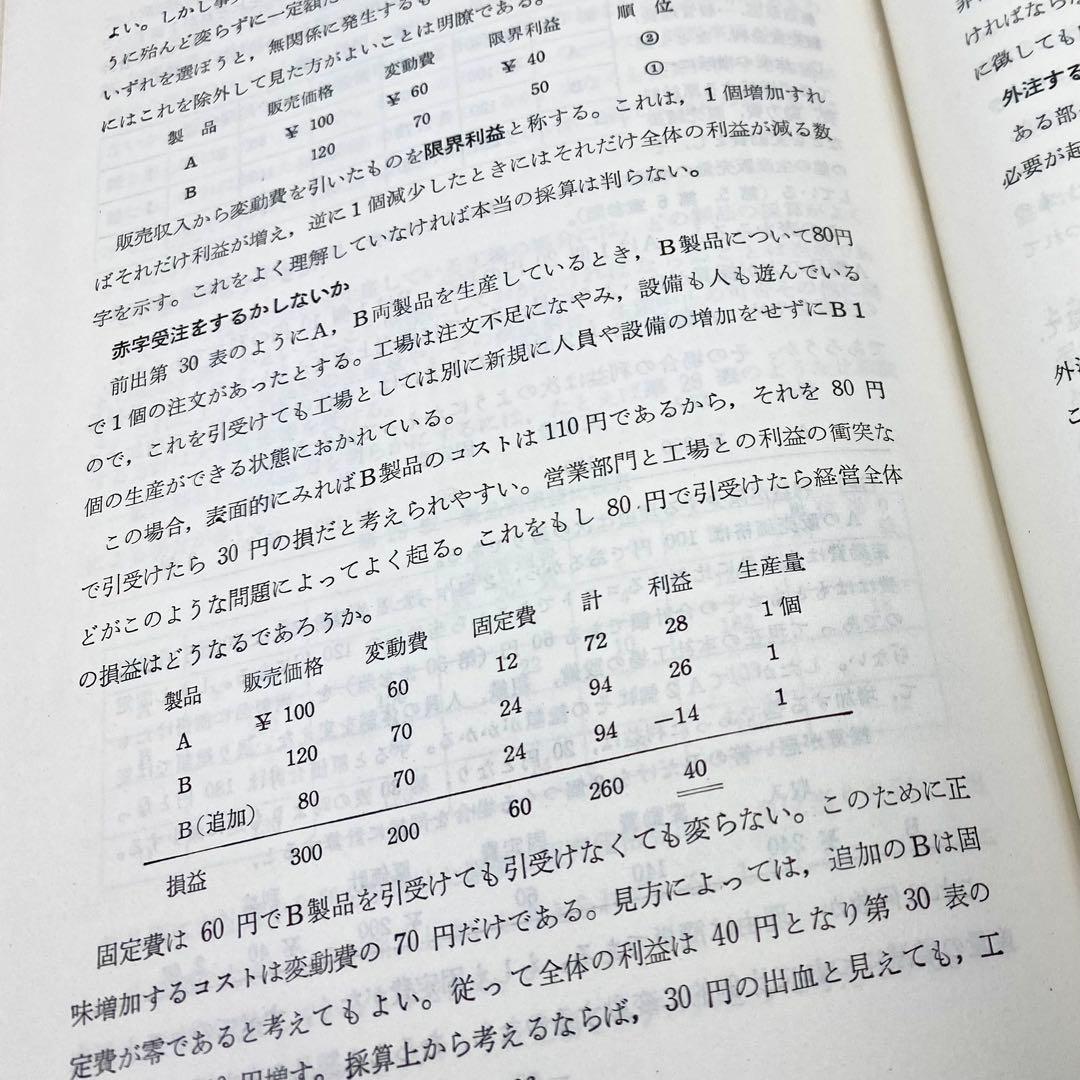 よい。しかし事
うに殆んど変らずに一定額だ
いずれを選ぼうと，無関係に発生するも
にはこれを除外して見た方がよいことは明瞭である。
製 品 販売価格 変動費 限界利益 順 位
A ￥ 100 ￥ 60 ￥ 40 ②
B 120 70 50 ①
販売収入から変動費を引いたものを限界利益と称する。これは，1個増加すれ
ばそれだけ利益が増え，逆に1個減少したときにはそれだけ全体の利益が減る数
字を示す。これをよく理解していなければ本当の採算は判らない。
赤字受注をするかしないか
前出第 30 表のようにA，B両製品を生産しているとき，B製品について80円
で1個の注文があったとする。工場は注文不足になやみ，設備も人も遊んでいる
ので，これを引受けても工場としては別に新規に人員や設備の増加をせずにB1
個の生産ができる状態におかれている。
この場合，表面的にみればB製品のコストは110円であるから，それを 80 円
で引受けたら 30 円の損だと考えられやすい。営業部門と工場との利益の衝突な
どがこのような問題によってよく起る。これをもし 80 円で引受けたら経営全体
の損益はどうなるであろうか。
製品 販売価格 変動費 固定費 計 利益 生産量
A ￥ 100 60 12 72 28 1個
B 120 70 24 94 26 1
B(追加) 80 70 24 94 −14 1
損益 300 200 60 260 40
固定費は 60 円でB製品を引受けても引受けなくても変らない。このために正
味増加するコストは変動費の 70 円だけである。見方によっては，追加のBは固
定費が零であると考えてもよい。従って全体の利益は 40 円となり第 30 表の
円増す。採算上から考えるならば，30 円の出血と見えても，工
ければならな
に徴しても
外注する
ある部
必要が起
外注
こ